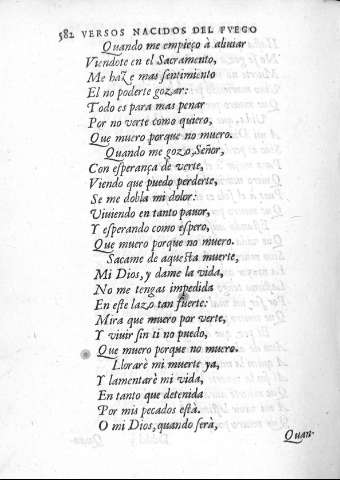 582 VERSOS NACIDOS DEL FVEGO
Quando me empieço à aliuiar
Viendote en el Sacramento,
Me haZe mas sentimiento
El no poderte gozar:
Todo es para mas penar
Por no verte como quiero,
Que muero porque no muero.
Quando me gozo, Señor,
Con esperança de verte,
Viendo que puedo perderte,
Se me dobla mi dolor:
Viuiendo en tanto pauor,
Y esperando como espero,
Que muero porque no muero.
Sacame de aquesta muerte,
Mi Dios, y dame la vida,
No me tengas impedida
En este lazo tan fuerte:
Mira que muero por verte,
Y viuir sin ti no puedo,
Que muero porque no muero.
Llorarè mi muerte ya,
Y lamentarè mi vida,
En tanto que detenida
Por mis pecados està.
O mi Dios, quando serà,
Quan-